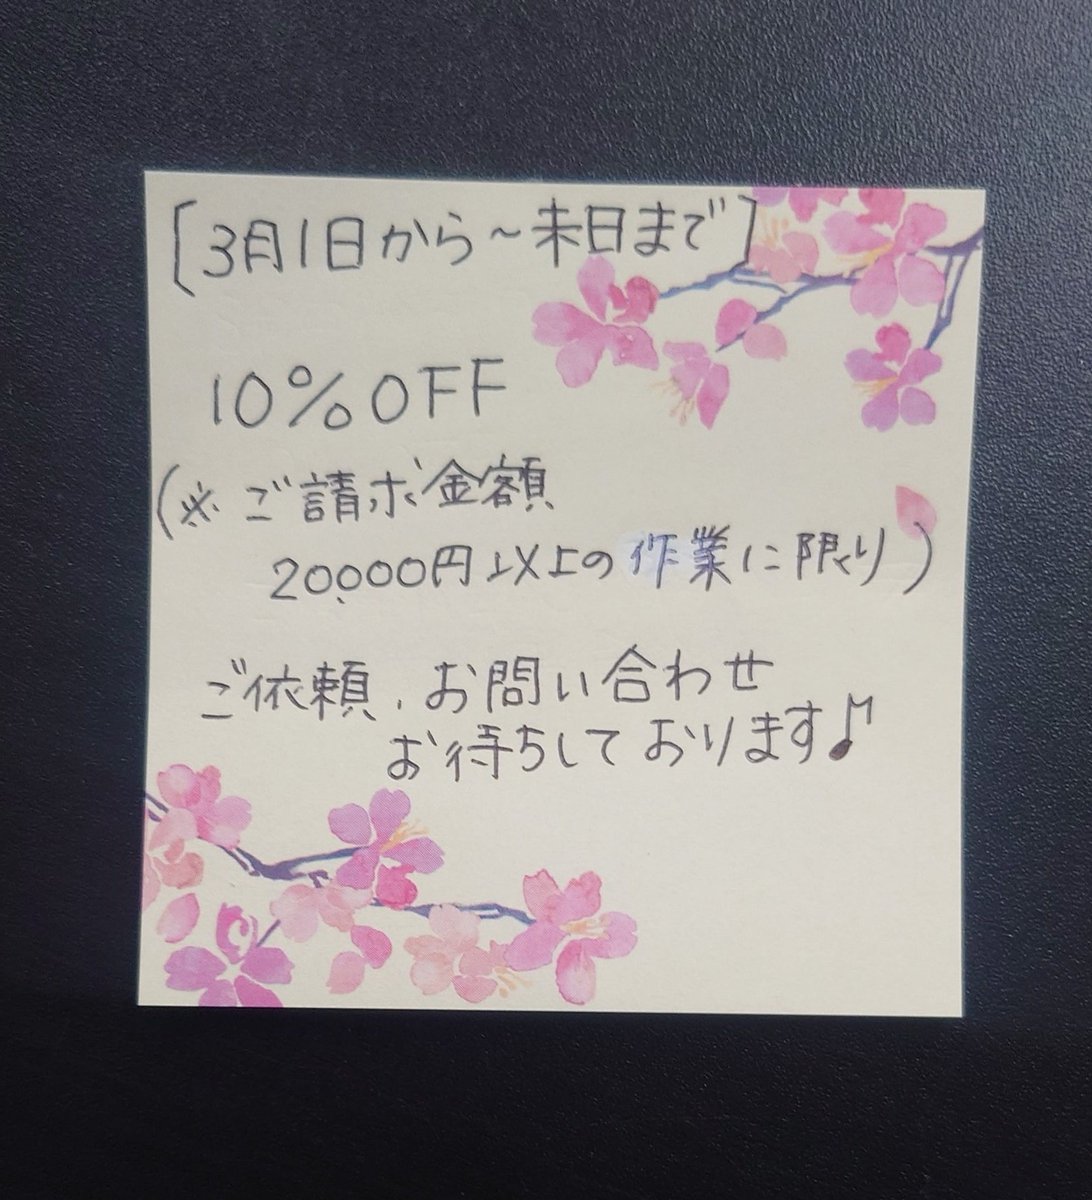 [3月1日から～末日まで]
10%OFF
(※ご請求金額
20,000円以上の作業に限り)
ご依頼、お問い合わせ
お待ちしております♪